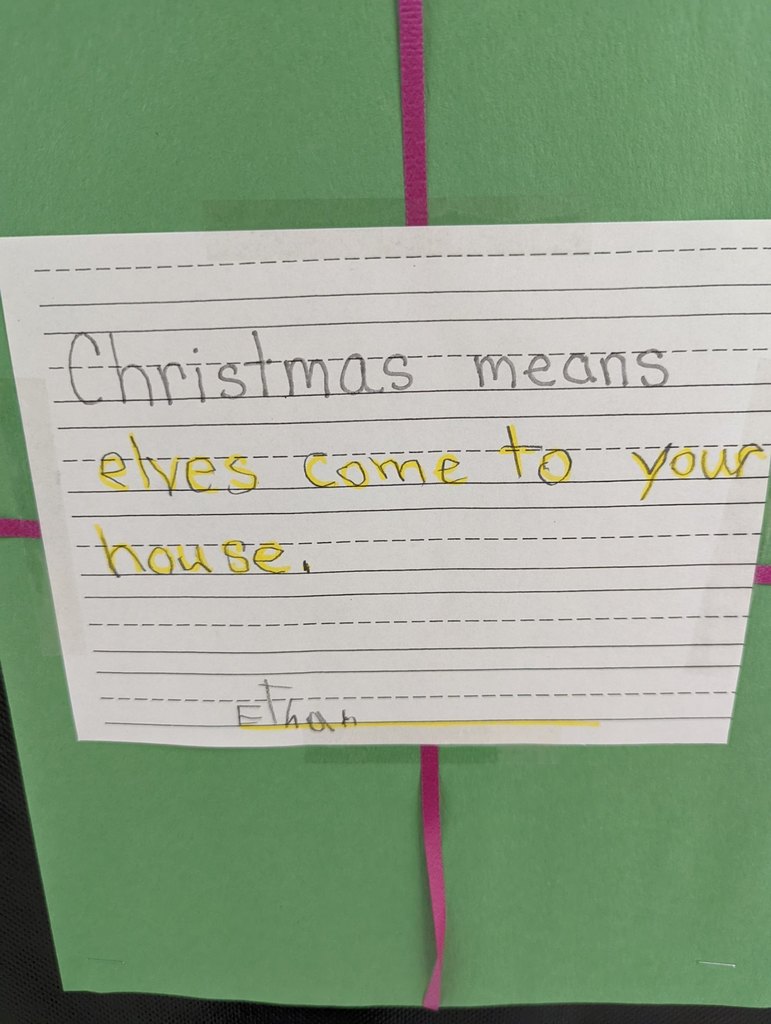 Christmas means
elves come to your
house.
Ethan